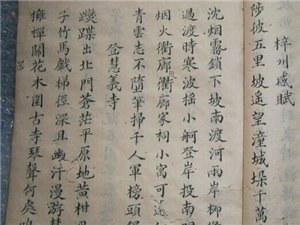 梓州感賦
陟彼五里坡遥望潼城垛千萬
沈烟霧鎖下坡南渡河兩岸柳
過渡時寒波摇小舸登岸投南
烟火衢廊衢廊家祠小寓可
青雲志不墮筆掃千人軍榜頭
登慧義寺
蹀出北門蒼茫平原地黄柑
子竹馬戲梯徑深且幽汗漫游
擁禪關花木圍古寺琴聲何處